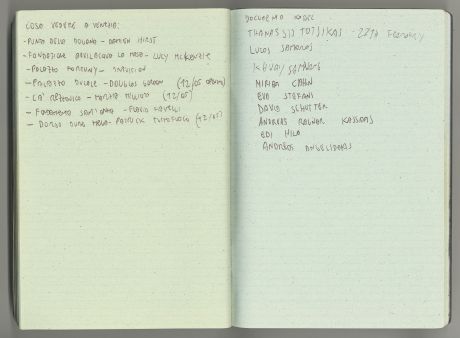 COSA VEDERE A VENEZIA:
- PUNTA DELLA DOGANA - DAMIEN HIRST
- FONDAZIONE BEVILACQUA LA MASA - LUCY MCKENZIE
- PALAZZO FORTUNY - INTUITION
- PALAZZO DUCALE - DOUGLAS GORDON (12/05
- CA' REZZONICO - (12/05)
- SANT' - FLAVIO FAVELLI
- DORSO DURO - PATRICK TUTTOFUOCO (12/05)
DOCUMENTA
THANASSIS TOTSIKAS - 22TH FEBRUARY
LUCAS SAMARAS
SAMARAS
MIRIAM CAHN
EVA STEFANI
DAVID SCHUTTER
ANDREAS RAGNAR KASSAPIS
EDI HILA
ANDREAS ANGELIDAKIS